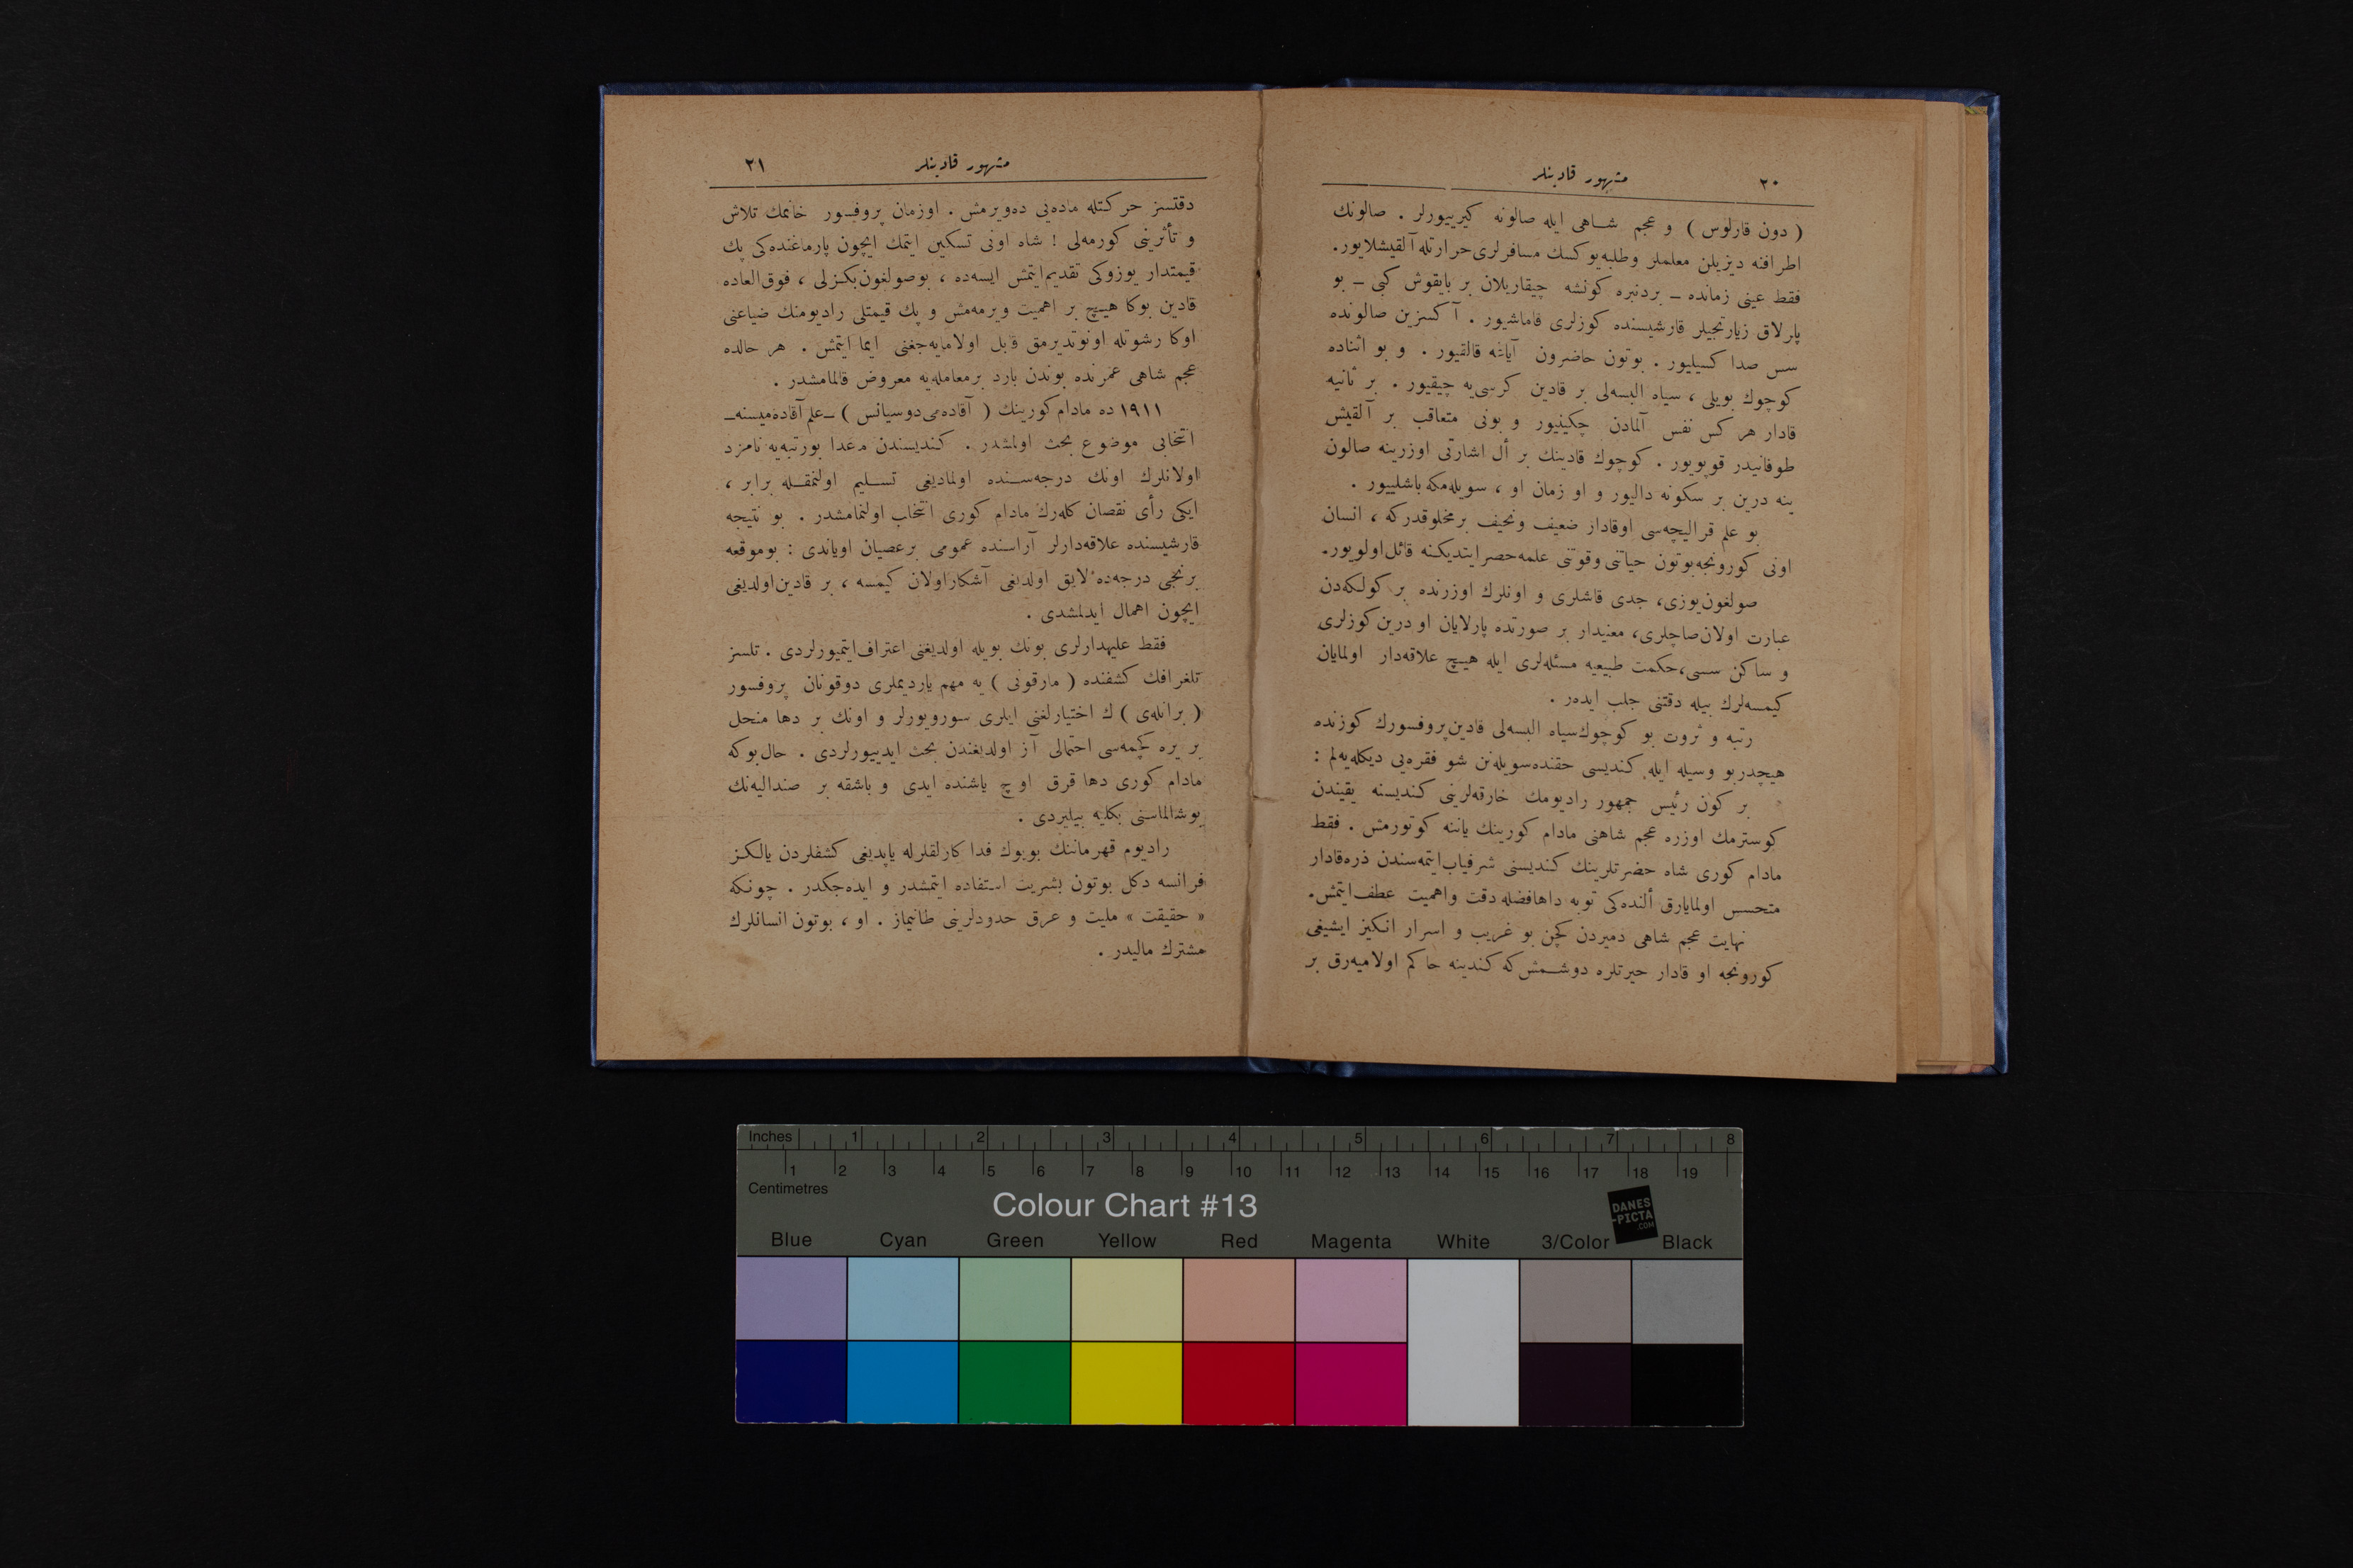 ٢٠
مشهور قادينلر
( دون قارلوس ) و عجم شاهى ايله صالونه كيرييورلر . صالونك
اطرافنه ديزيلن معلملر وطلبه يوكسك مسافرلرى حرارتله آلقيشلايور.
فقط عينى زمانده ــ بردنبره كونشه چيقاريلان بر بايقوش كبى ــ بو
پارلاق زيارتجيلر قارشيسنده كوزلرى قاماشيور . آكسزين صالونده
سس صدا كسيليور . بوتون حاضرون آياغه قالقيور . و بو اثناده
كوچوك بويلى ، سياه البسه‌لى بر قادين كرسى‌يه چيقيور . بر ثانيه
قادار هر كس نفس آلمادن چكينيور و بونى متعاقب بر آلقيش
طوفانيدر قوپويور . كوچوك قادينك بر أل اشارتى اوزرينه صالون
ينه درين بر سكونه داليور و او زمان او ، سويله‌مكه باشلييور .
بو علم قراليچه‌سى اوقادار ضعيف ونحيف بر مخلوقدركه ، انسان
اونى كورونجه بوتون حياتنى وقوتنى علمه حصر ايتديكنه قائل اولويور.
صولغون يوزى، جدى قاشلرى و اونلرك اوزرنده بر كولكه‌دن
عبارت اولان صاچلرى، معنيدار بر صورتده پارلايان او درين كوزلرى
و ساكن سسى، حكمت طبيعيه مسئله‌لرى ايله هيچ علاقه‌دار اولمايان
كيمسه‌لرك بيله دقتنى جلب ايدەر .
رتبه و ثروت بو كوچوك سياه البسه‌لى قادين پروفسورك كوزنده
هيچدر بو وسيله ايله كنديسى حقنده سويله‌نن شو فقره‌يى ديكله‌يه‌لم :
بر كون رئيس جمهور راديومك خارقه‌لرينى كنديسنه يقيندن
كوسترمك اوزره عجم شاهنى مادام كورينك ياننه كوتورمش . فقط
مادام كورى شاه حضرتلرينك كنديسنى شرفياب ايتمه‌سندن ذره قادار
متحسس اولمايارق ألنده‌كى توبه داها فضله دقت واهميت عطف ايتمش.
نهايت عجم شاهى دميردن كچن بو غريب و اسرار انكيز ايشيغى
كورونجه او قادار حيرتلره دوشمش كه كندينه حاكم اولاميه‌رق بر
مشهور قادينلر
٢١
دقتسز حركتله ماده‌يى ده‌ويرمش . اوزمان پروفسور خانمك تلاش
و تأثرينى كورمه‌لى ! شاه اونى تسكين ايتمك ايچون پارماغنده‌كى پك
قيمتدار يوزوكى تقديم ايتمش ايسه‌ده ، بو صولغون بكزلى ، فوق العاده
قادين بوكا هيچ بر اهميت ويرمه‌مش و پك قيمتلى راديومنك ضياعنى
اوكا رشوتله اونوتديرمق قابل اولامايه‌جغنى ايما ايتمش . هر حالده
عجم شاهى عمرنده بوندن بارد بر معامله‌يه معروض قالمامشدر .
١٩١١ ده مادام كورينك ( آقاده‌مى دو سيانس ) ــ علم آقاده‌ميسنه ــ
انتخابى موضوع بحث اولمشدر . كنديسندن ماعدا بو رتبه‌يه نامزد
اولانلرك اونك درجه‌سنده اولماديغى تسليم اولنمقله برابر ،
ايكى رأى نقصان كله‌رك مادام كورى انتخاب اولنمامشدر . بو نتيجه
قارشيسنده علاقه‌دارلر آراسنده عمومى بر عصيان اوياندى : بو موقعه
برنجى درجه‌ده لايق اولديغى آشكار اولان كيمسه ، بر قادين اولديغى
ايچون اهمال ايدلمشدى .
فقط عليهدارلرى بونك بويله اولديغنى اعتراف ايتميورلردى . تلسز
تلغرافك كشفنده ( مارقونى ) يه مهم يارديملرى دوقونان پروفسور
( برانله‌ى ) ك اختيارلغنى ايلرى سورويورلر و اونك بر دها منحل
بر يره كچمه‌سى احتمالى آز اولديغندن بحث ايدييورلردى . حال بوكه
مادام كورى دها قرق اوچ ياشنده ايدى و باشقه بر صنداليه‌نك
بوشالماسنى بكليه بيليردى .
راديوم قهرماننك بويوك فدا كارلقلرله ياپديغى كشفلردن يالكز
فرانسه دكل بوتون بشريت استفاده ايتمشدر و ايده‌جكدر . چونكه
« حقيقت » مليت و عرق حدودلرينى طانيماز . او ، بوتون انسانلرك
مشترك ماليدر .
Inches 1 2 3 4 5 6 7 8
1 2 3 4 5 6 7 8 9 10 11 12 13 14 15 16 17 18 19
Centimetres
Colour Chart #13
DANES
-PICTA
.COM
Blue Cyan Green Yellow Red Magenta White 3/Color Black